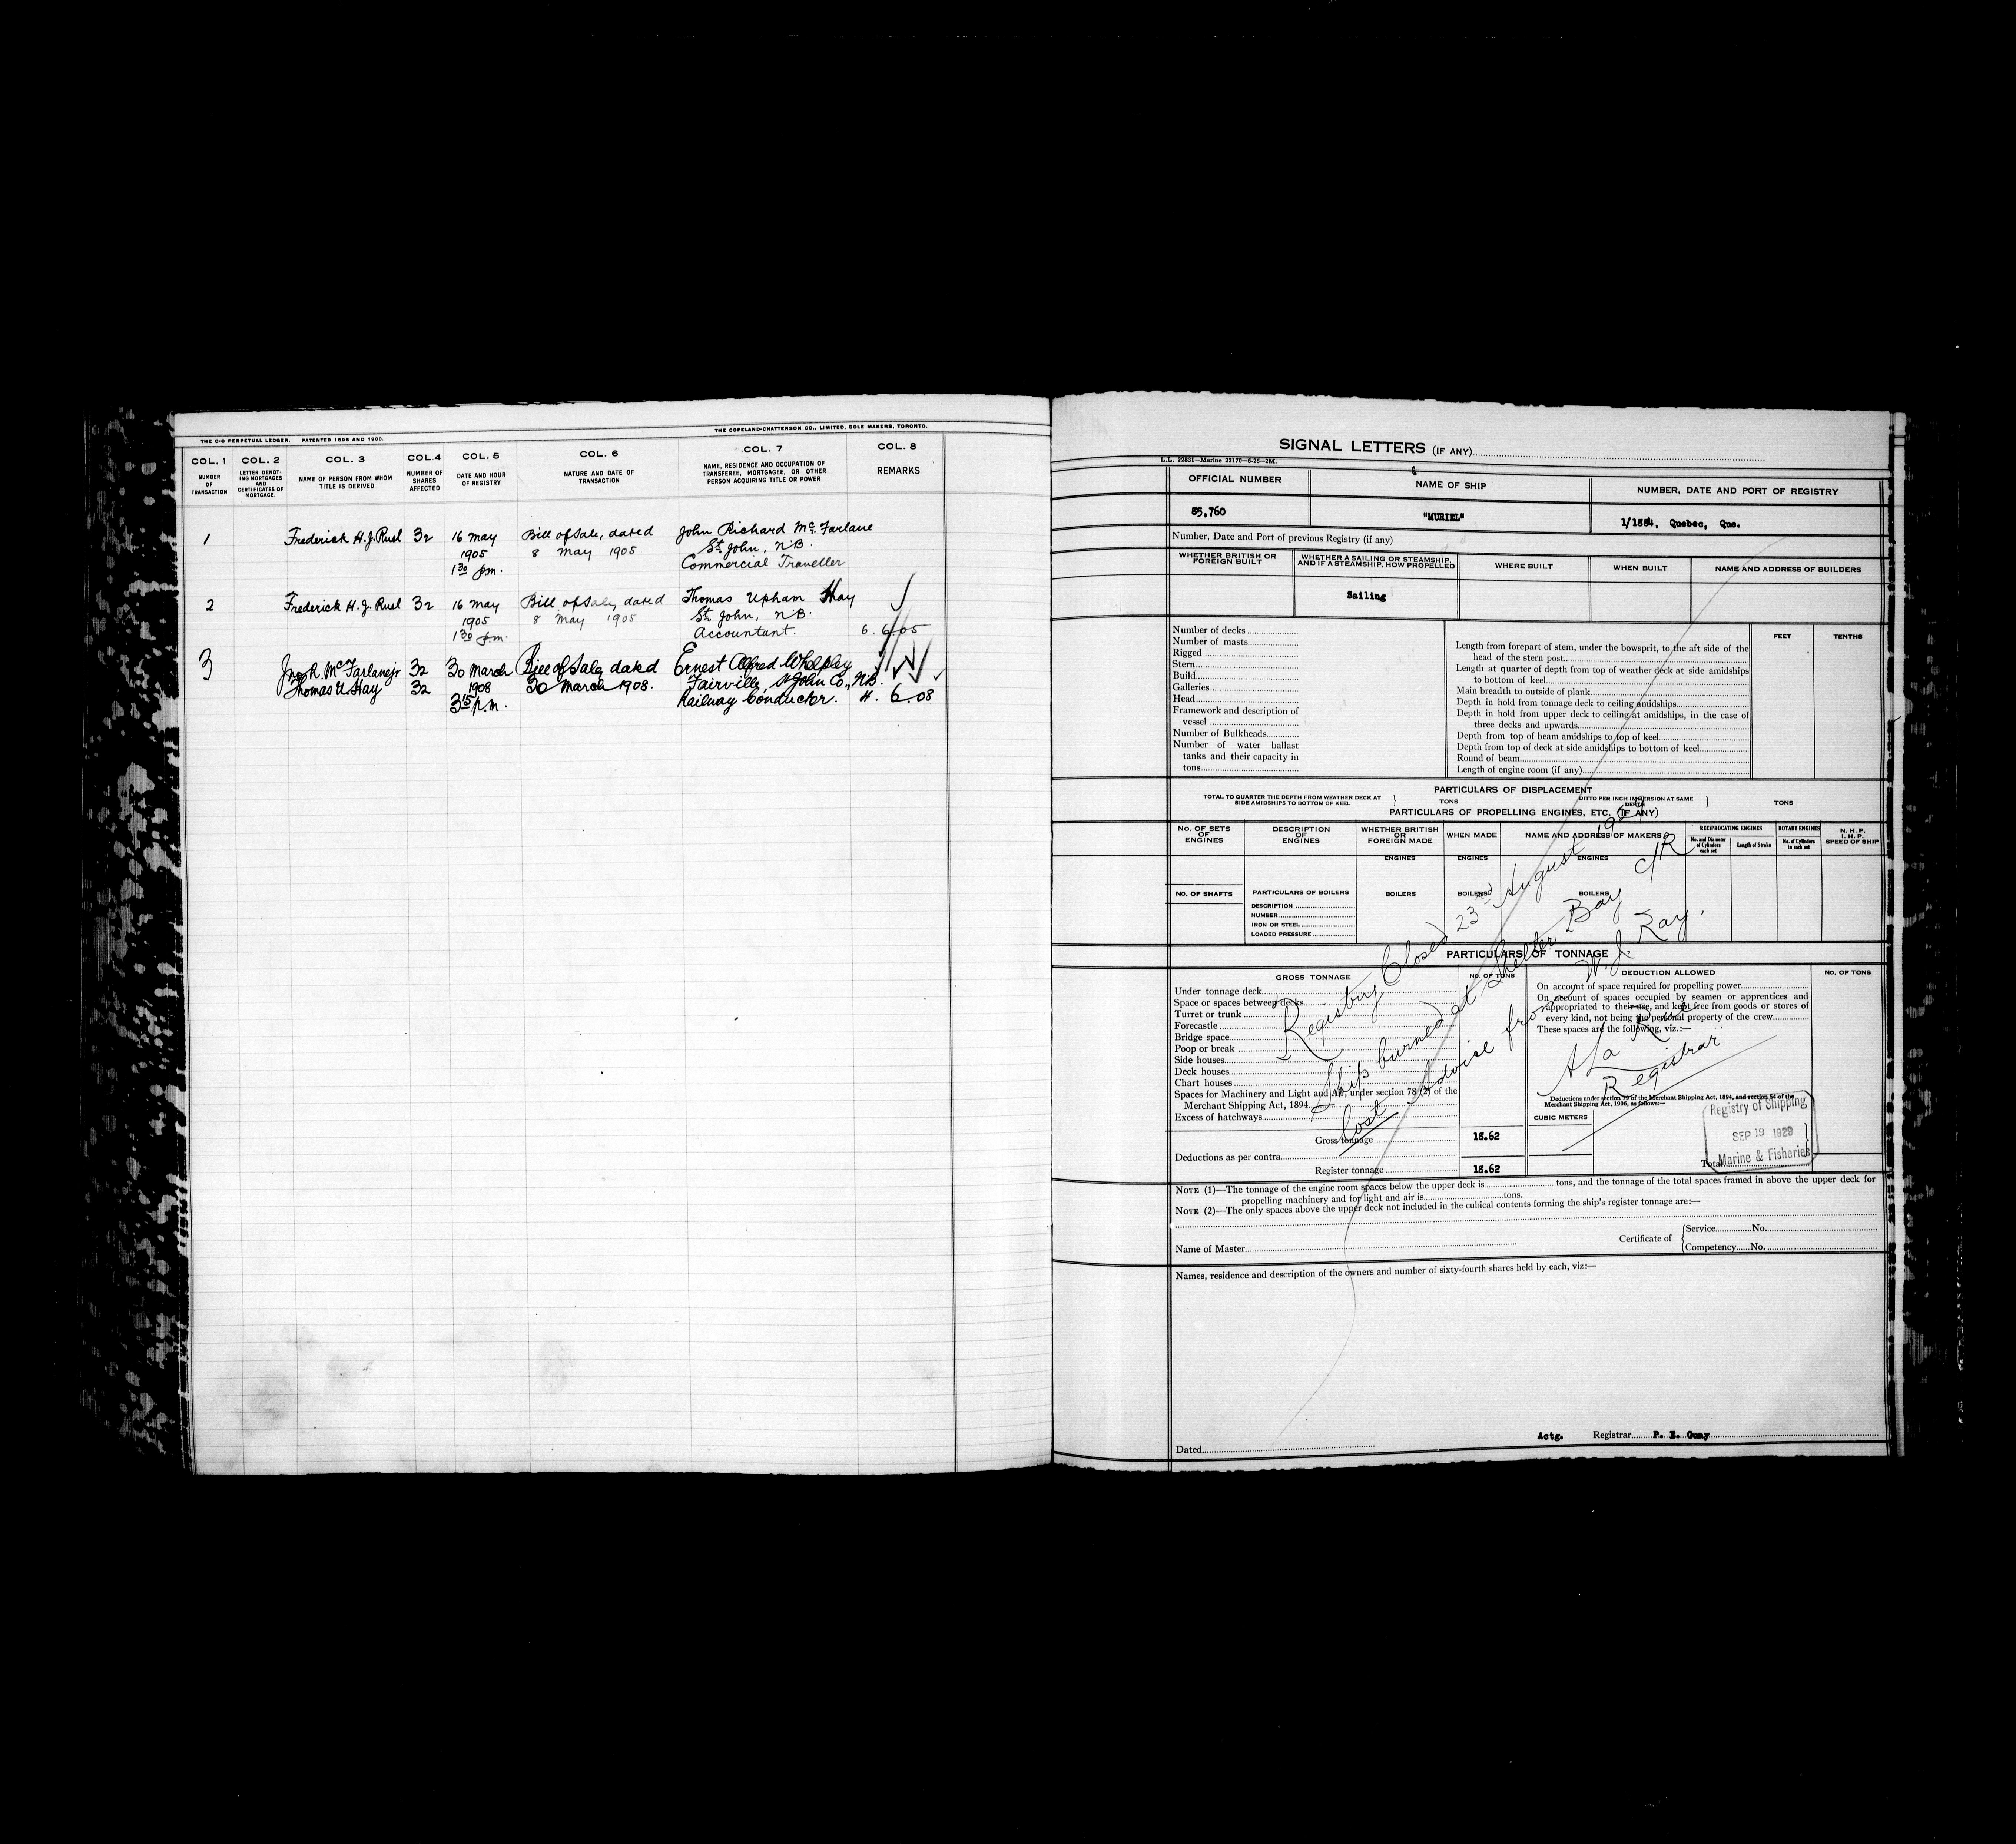 THE C-C PERPETUAL LEDGER. PATENTED 1896 AND 1900.
THE COPELAND-CHATTERSON CO., LIMITED, SOLE MAKERS, TORONTO.
COL. 1 COL. 2 COL. 3 COL. 4 COL. 5 COL. 6 COL. 7 COL. 8
NUMBER OF TRANSACTION
LETTER DENOTING MORTGAGES AND CERTIFICATES OF MORTGAGE.
NAME OF PERSON FROM WHOM TITLE IS DERIVED
NUMBER OF SHARES AFFECTED
DATE AND HOUR OF REGISTRY
NATURE AND DATE OF TRANSACTION
NAME, RESIDENCE AND OCCUPATION OF TRANSFEREE, MORTGAGEE, OR OTHER PERSON ACQUIRING TITLE OR POWER
REMARKS
1 Frederick H. J. Ruel 32 16 May Bill of Sale, dated John Richard McFarlane
1905 8 May 1905 St John, N.B.
1 30 p.m. Commercial Traveller
2 Frederick H. J. Ruel 32 16 May Bill of Sale, dated Thomas Upham Hay
1905 8 May 1905 St. John, N.B.
1 30 p.m. Accountant. 6. 6 05
3 Jno R. McFarlane jr 32 30 March Bill of Sale dated Ernest Alfred Whelpley
Thomas U Hay 32 1908 30 March 1908. Fairville, St John Co., N.B.
3 15 p.m. Railway Conductor. 4. 6. 08
SIGNAL LETTERS (IF ANY)
L.L. 22831—Marine 22170—6-26—2M.
OFFICIAL NUMBER NAME OF SHIP NUMBER, DATE AND PORT OF REGISTRY
85,760 "MURIEL" 1/1884, Quebec, Que.
Number, Date and Port of previous Registry (if any)
WHETHER BRITISH OR FOREIGN BUILT
WHETHER A SAILING OR STEAMSHIP, AND IF A STEAMSHIP, HOW PROPELLED
WHERE BUILT WHEN BUILT NAME AND ADDRESS OF BUILDERS
Sailing
FEET TENTHS
Number of decks
Number of masts
Rigged
Stern
Build
Galleries
Head
Framework and description of vessel
Number of Bulkheads
Number of water ballast tanks and their capacity in tons
Length from forepart of stem, under the bowsprit, to the aft side of the head of the stern post
Length at quarter of depth from top of weather deck at side amidships to bottom of keel
Main breadth to outside of plank
Depth in hold from tonnage deck to ceiling amidships
Depth in hold from upper deck to ceiling at amidships, in the case of three decks and upwards
Depth from top of beam amidships to top of keel
Depth from top of deck at side amidships to bottom of keel
Round of beam
Length of engine room (if any)
PARTICULARS OF DISPLACEMENT
TOTAL TO QUARTER THE DEPTH FROM WEATHER DECK AT SIDE AMIDSHIPS TO BOTTOM OF KEEL } TONS DITTO PER INCH IMMERSION AT SAME DEPTH } TONS
PARTICULARS OF PROPELLING ENGINES, ETC. (IF ANY)
NO. OF SETS OF ENGINES
DESCRIPTION OF ENGINES
WHETHER BRITISH OR FOREIGN MADE
WHEN MADE
NAME AND ADDRESS OF MAKERS
RECIPROCATING ENGINES
No. and Diameter of Cylinders each set
Length of Stroke
ROTARY ENGINES
No. of Cylinders in each set
N. H. P.
I. H. P.
SPEED OF SHIP
ENGINES ENGINES ENGINES
NO. OF SHAFTS PARTICULARS OF BOILERS BOILERS BOILERS BOILERS
DESCRIPTION
NUMBER
IRON OR STEEL
LOADED PRESSURE
Registry Closed 23rd August
Ship burned at Shelter Bay
lost Advice from W. J. Ray.
Registrar
PARTICULARS OF TONNAGE
GROSS TONNAGE NO. OF TONS DEDUCTION ALLOWED NO. OF TONS
Under tonnage deck
Space or spaces between decks
Turret or trunk
Forecastle
Bridge space
Poop or break
Side houses
Deck houses
Chart houses
Spaces for Machinery and Light and Air, under section 78 (2) of the Merchant Shipping Act, 1894
Excess of hatchways
Gross tonnage 18.62
Deductions as per contra
Register tonnage 18.62
On account of space required for propelling power
On account of spaces occupied by seamen or apprentices and appropriated to their use, and kept free from goods or stores of every kind, not being the personal property of the crew
These spaces are the following, viz.:—
Deductions under section 79 of the Merchant Shipping Act, 1894, and section 54 of the Merchant Shipping Act, 1906, as follows:—
CUBIC METERS
Total
Registry of Shipping
SEP 19 1929
Marine & Fisheries
NOTE (1)—The tonnage of the engine room spaces below the upper deck is tons, and the tonnage of the total spaces framed in above the upper deck for
propelling machinery and for light and air is tons.
NOTE (2)—The only spaces above the upper deck not included in the cubical contents forming the ship's register tonnage are:—
Name of Master Certificate of { Service No.
Competency No.
Names, residence and description of the owners and number of sixty-fourth shares held by each, viz:—
Dated Actg. Registrar P. E. Guay